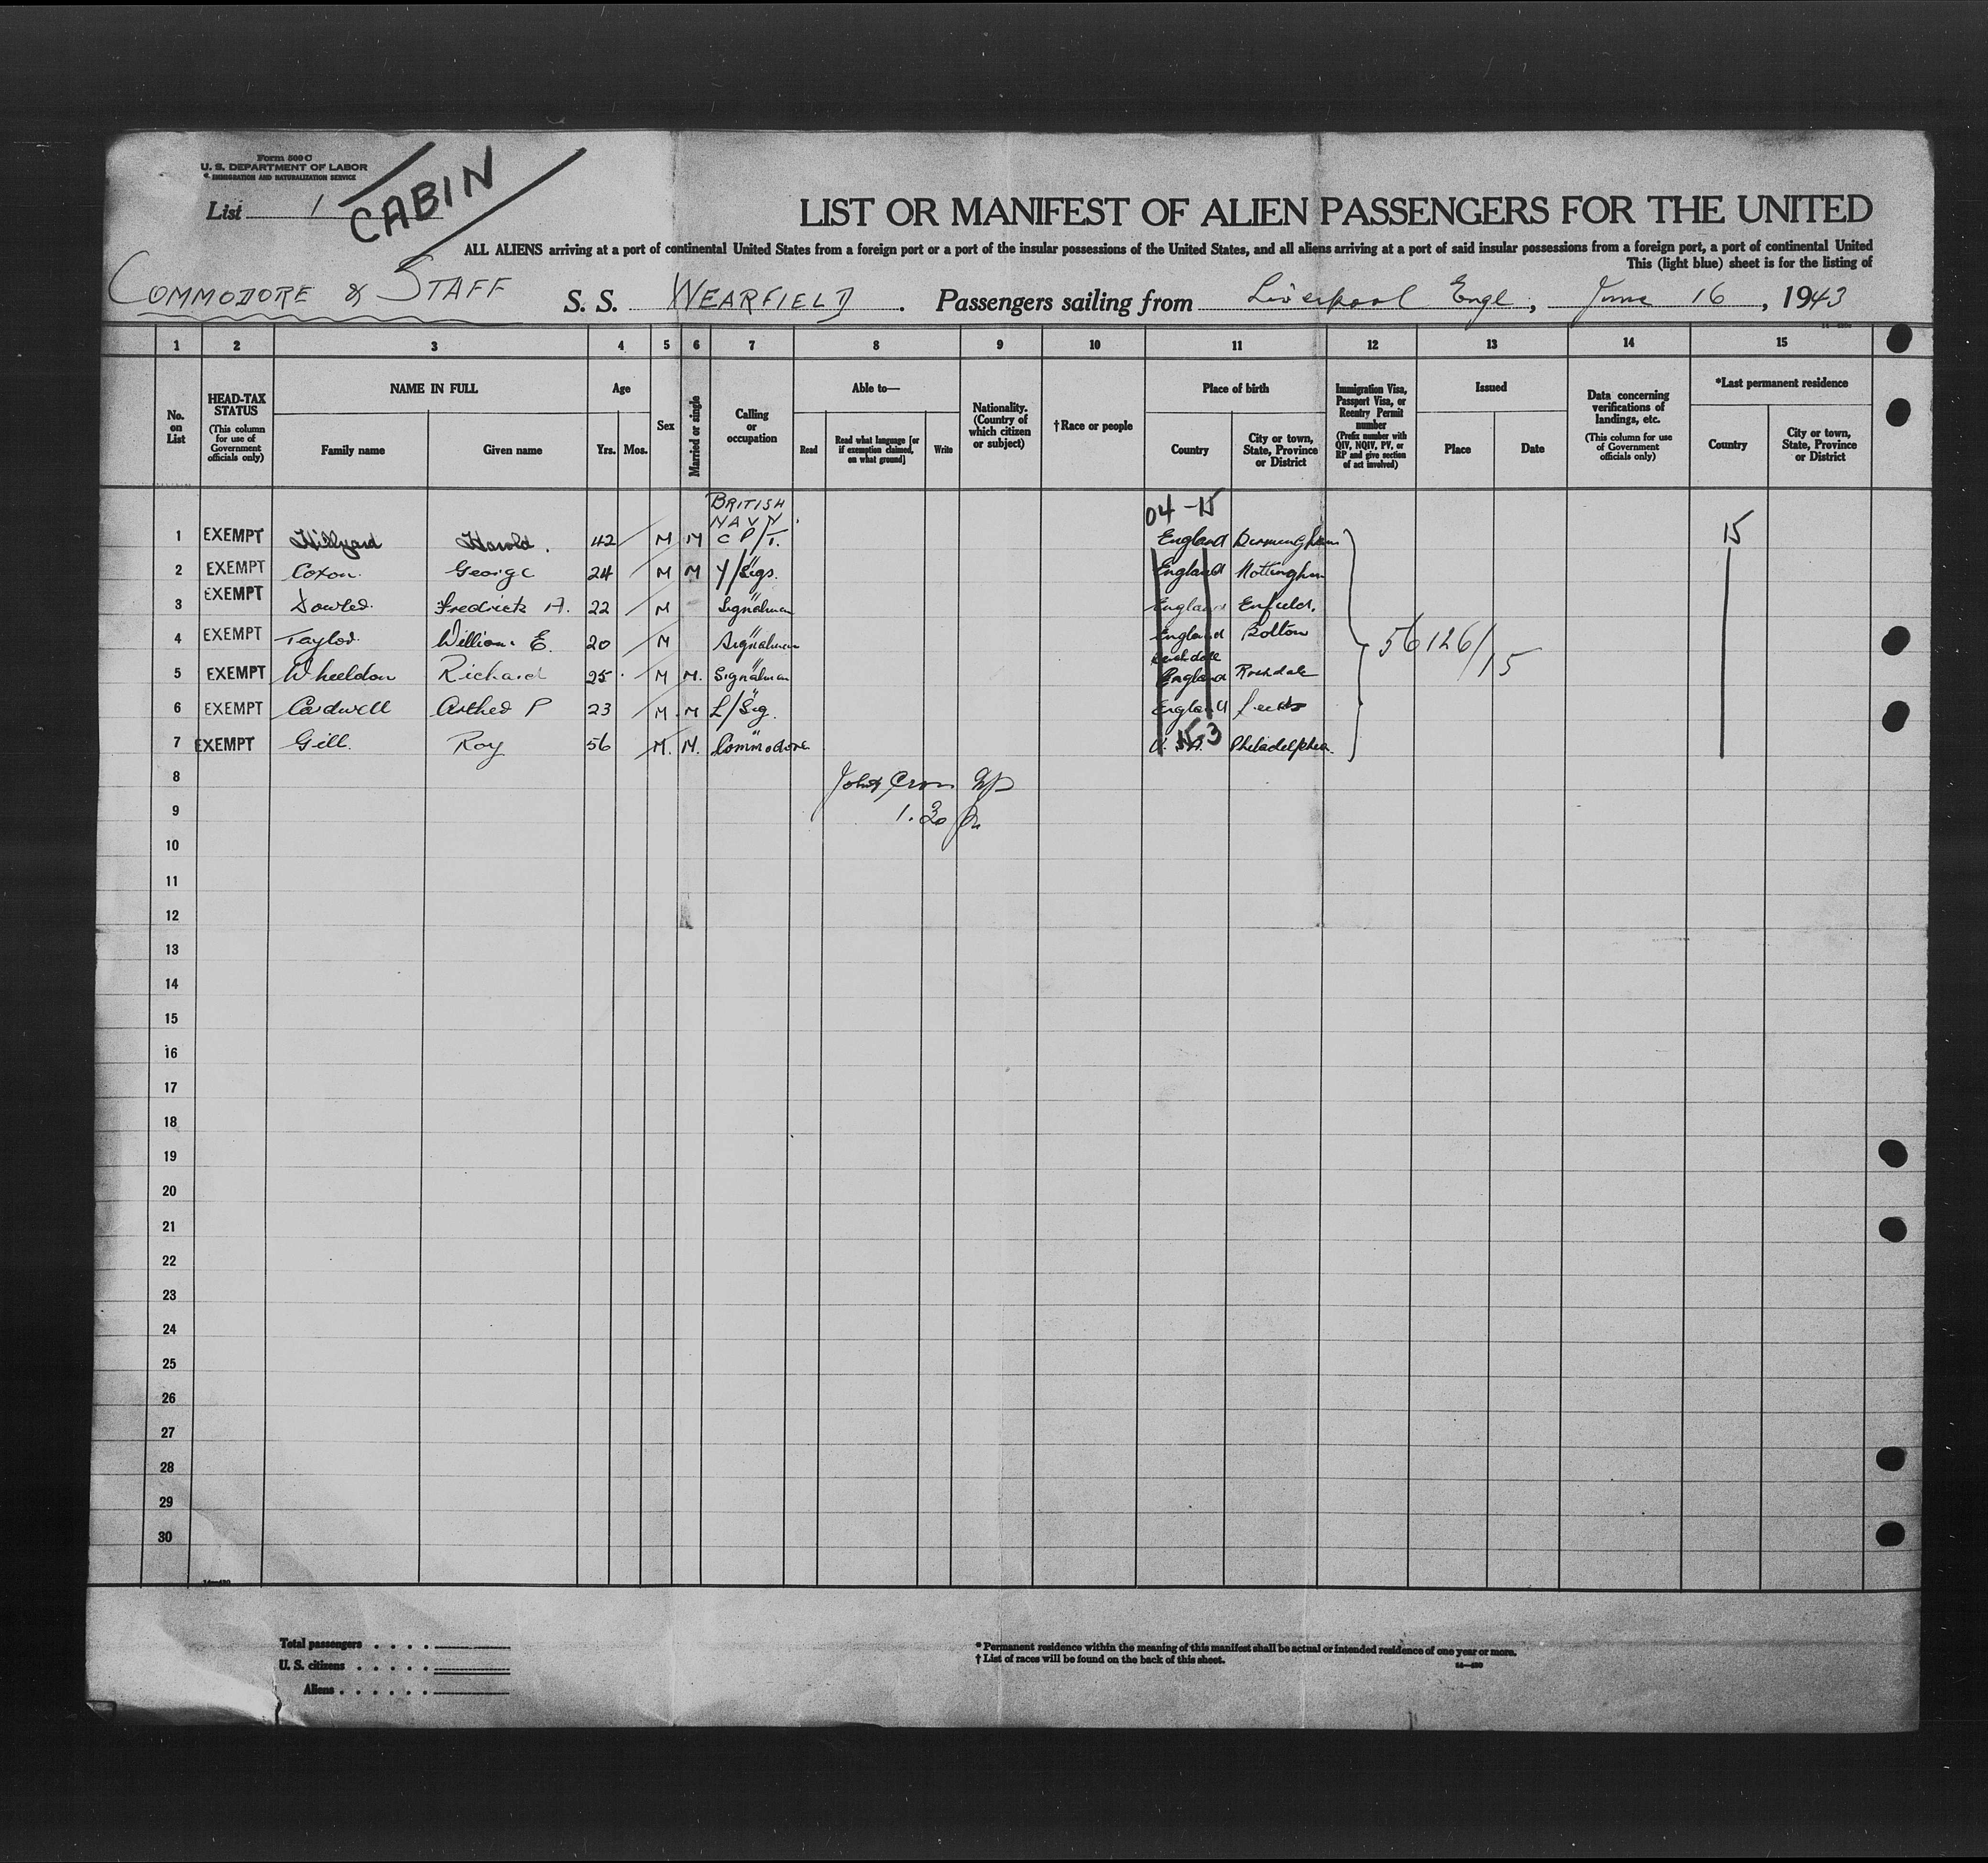 Form 500 C
U. S. DEPARTMENT OF LABOR
IMMIGRATION AND NATURALIZATION SERVICE
List 1
CABIN
LIST OR MANIFEST OF ALIEN PASSENGERS FOR THE UNITED
ALL ALIENS arriving at a port of continental United States from a foreign port or a port of the insular possessions of the United States, and all aliens arriving at a port of said insular possessions from a foreign port, a port of continental United
This (light blue) sheet is for the listing of
COMMODORE & STAFF S. S. WEARFIELD. Passengers sailing from Liverpool Engl, June 16, 1943
1 2 3 4 5 6 7 8 9 10 11 12 13 14 15
No. on List
HEAD-TAX STATUS
(This column for use of Government officials only)
NAME IN FULL
Family name Given name
Age
Yrs. Mos.
Sex
Married or single
Calling or occupation
Able to—
Read
Read what language [or if exemption claimed, on what ground]
Write
Nationality. (Country of which citizen or subject)
†Race or people
Place of birth
Country
City or town, State, Province or District
Immigration Visa, Passport Visa, or Reentry Permit number
(Prefix number with QIV, NQIV, PV, or RP and give section of act involved)
Issued
Place Date
Data concerning verifications of landings, etc.
(This column for use of Government officials only)
*Last permanent residence
Country
City or town, State, Province or District
BRITISH
NAVY. 04-15
1 EXEMPT Hillyard Harold. 42 M M C P/T. England Birmingham 15
2 EXEMPT Coxon. George 24 M M Y/Sigs. England Nottingham
3 EXEMPT Fredrick A. 22 M Signalman England Enfield.
4 EXEMPT Taylor William E. 20 M Signalman England Bolton
56126/15
Rochdale
5 EXEMPT Wheeldon Richard 25 M M. Signalman England Rochdale
6 EXEMPT Cardwell Arther P 23 M. M L/Sig. England Leeds
7 EXEMPT Gill. Roy 56 M. M. Commodore U.S.A. 15-3 Philadelphia
8
9 1.30
10
11
12
13
14
15
16
17
18
19
20
21
22
23
24
25
26
27
28
29
30
Total passengers
U. S. citizens
Aliens
* Permanent residence within the meaning of this manifest shall be actual or intended residence of one year or more.
† List of races will be found on the back of this sheet.